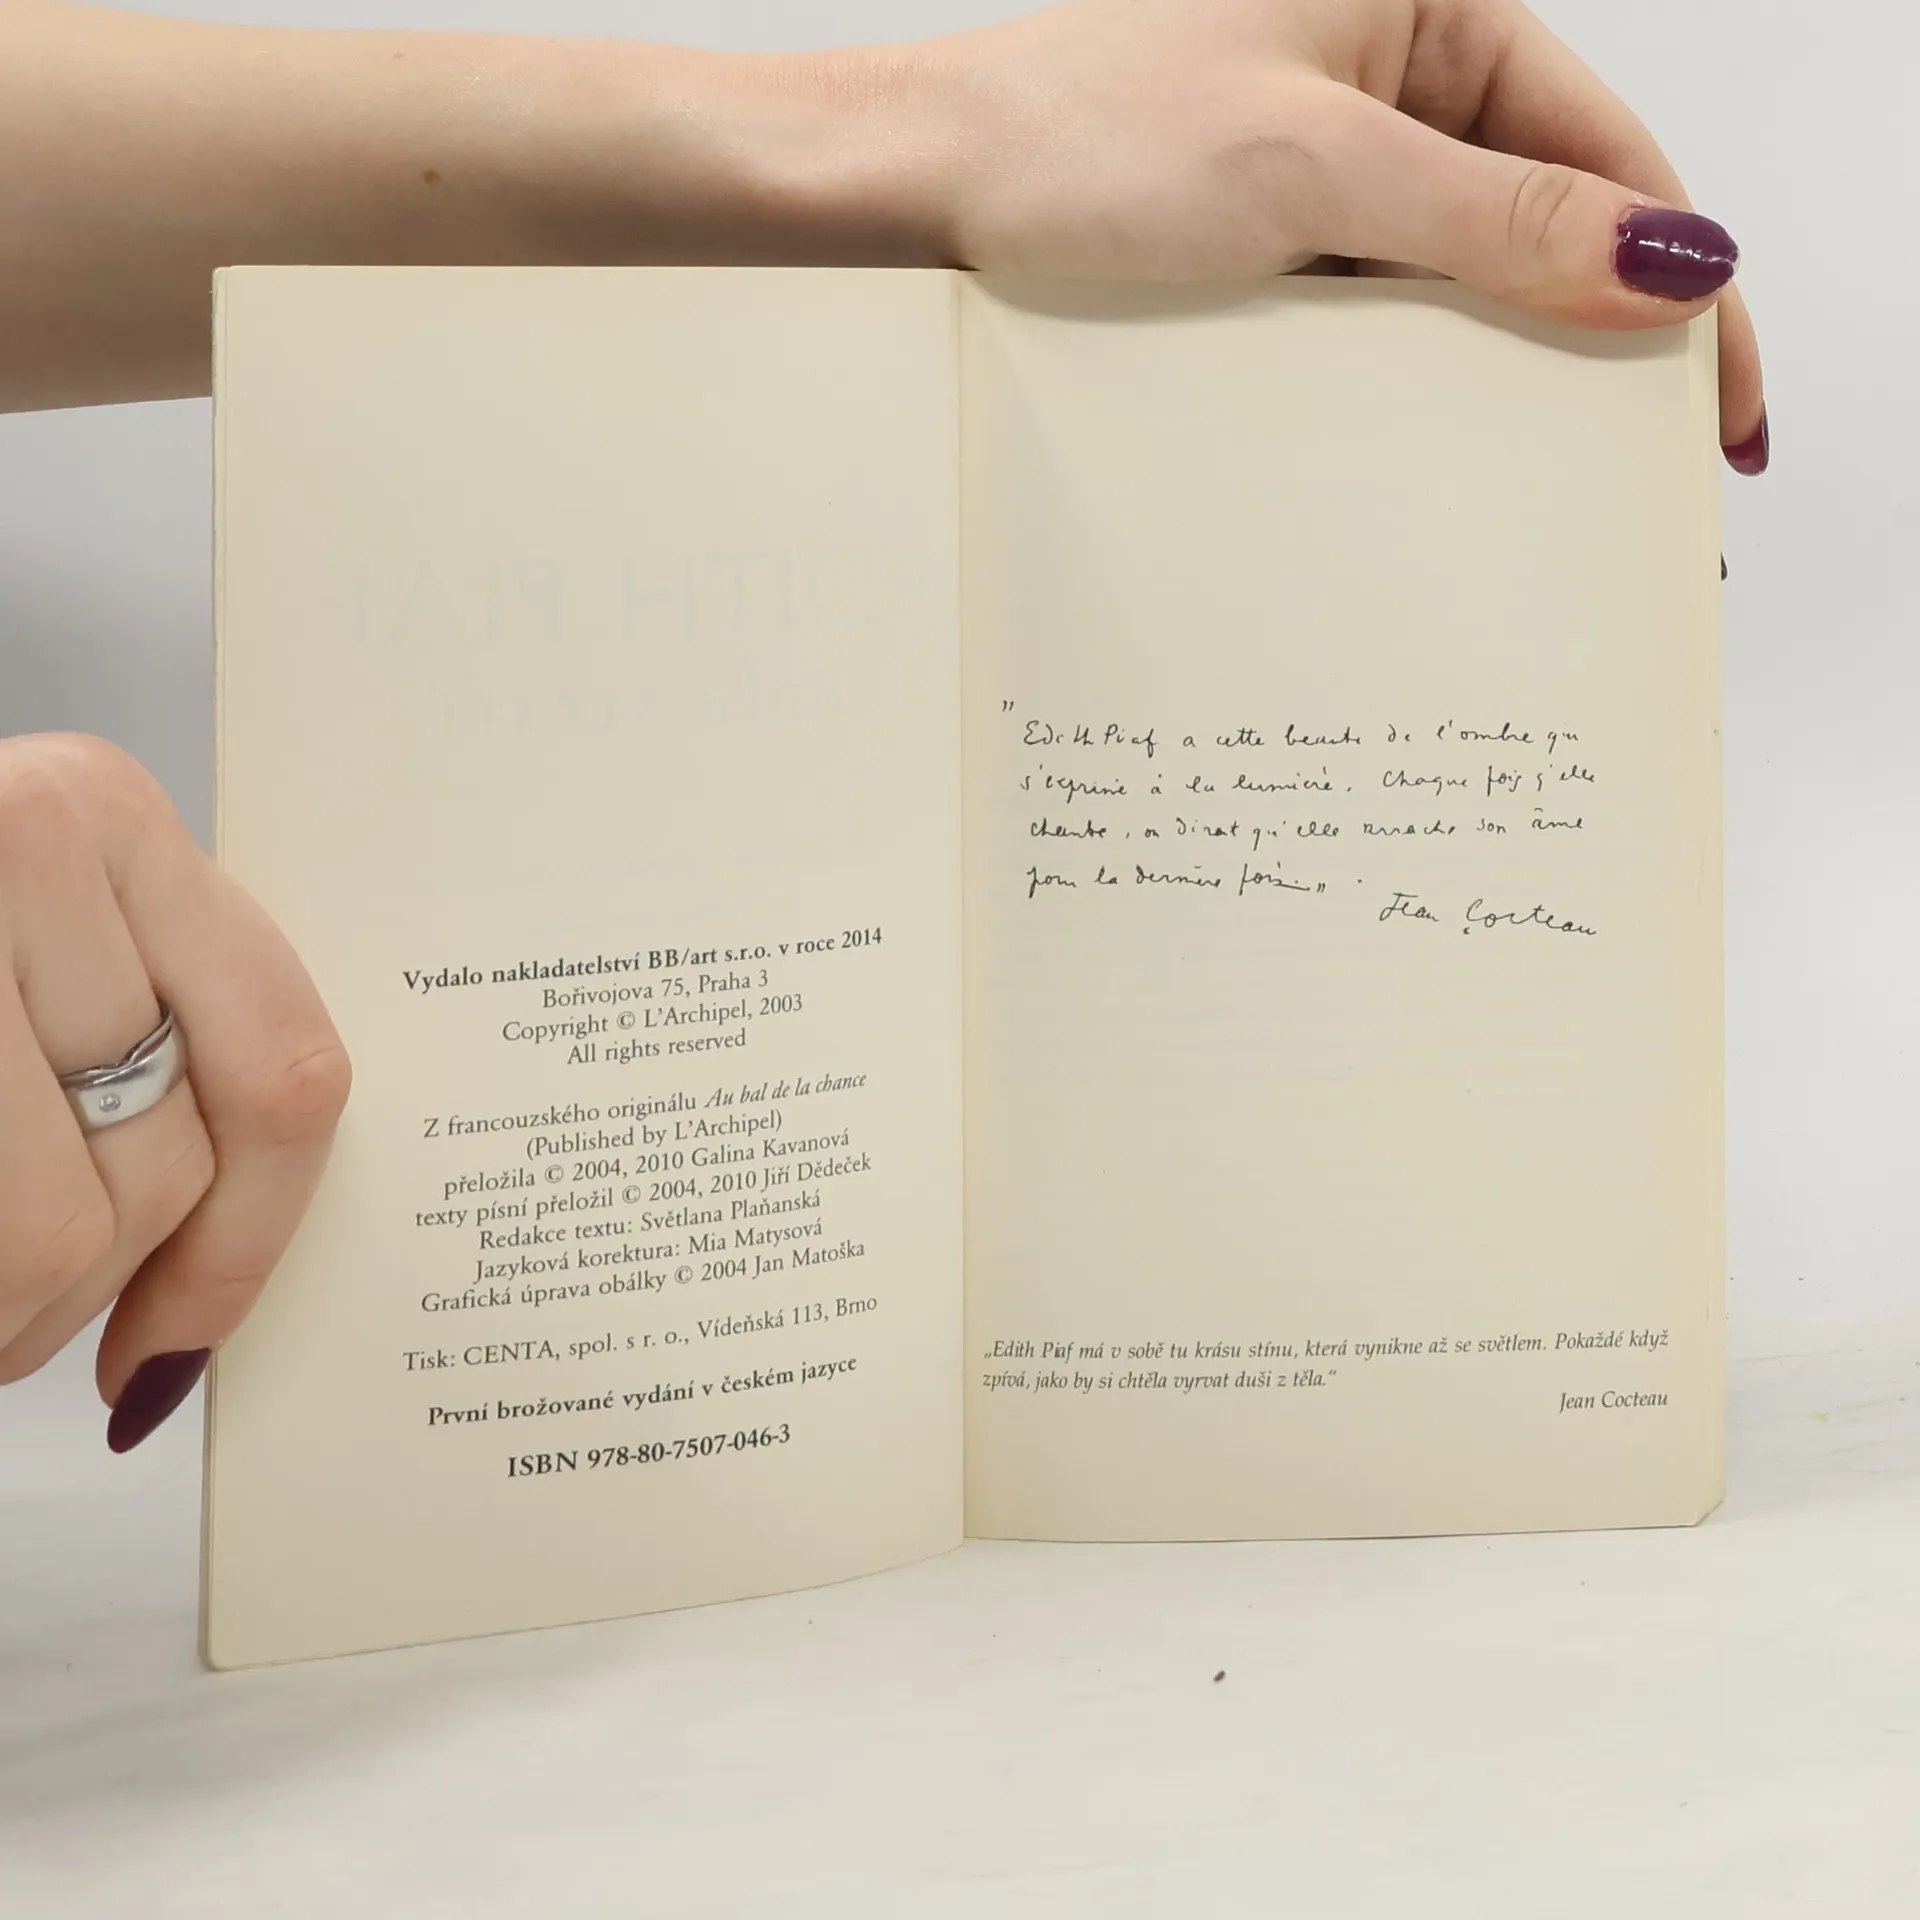 Vydalo nakladatelství BB/art s.r.o. v roce 2014
Bořivojova 75, Praha 3
Copyright © L'Archipel, 2003
All rights reserved
Z francouzského originálu Au bal de la chance
(Published by L'Archipel)
přeložila © 2004, 2010 Galina Kavanová
texty písní přeložil © 2004, 2010 Jiří Dědeček
Redakce textu: Světlana Plaňanská
Jazyková korektura: Mia Matysová
Grafická úprava obálky © 2004 Jan Matoška
Tisk: CENTA, spol. s r. o., Vídeňská 113, Brno
První brožované vydání v českém jazyce
ISBN 978-80-7507-046-3
"Edith Piaf a cette beauté de l'ombre qui
s'exprime à la lumière. Chaque fois q'elle
chante, on dirait qu'elle arrache son âme
pour la dernière fois."
Jean Cocteau
„Edith Piaf má v sobě tu krásu stínu, která vynikne až se světlem. Pokaždé když
zpívá, jako by si chtěla vyrvat duši z těla.“
Jean Cocteau